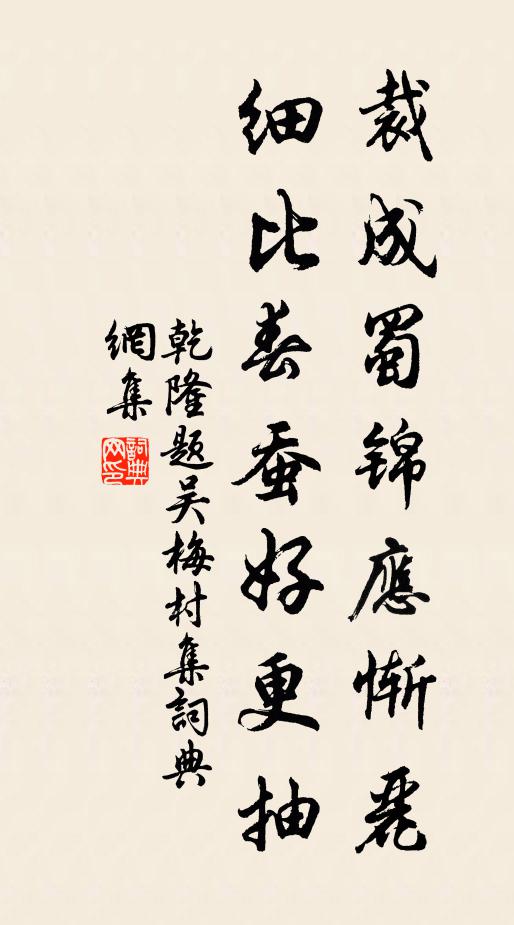 裁成蜀锦應惭麗
细比春蚕好更抽
乾隆题吴梅村集詞典
網集
詞典
网印